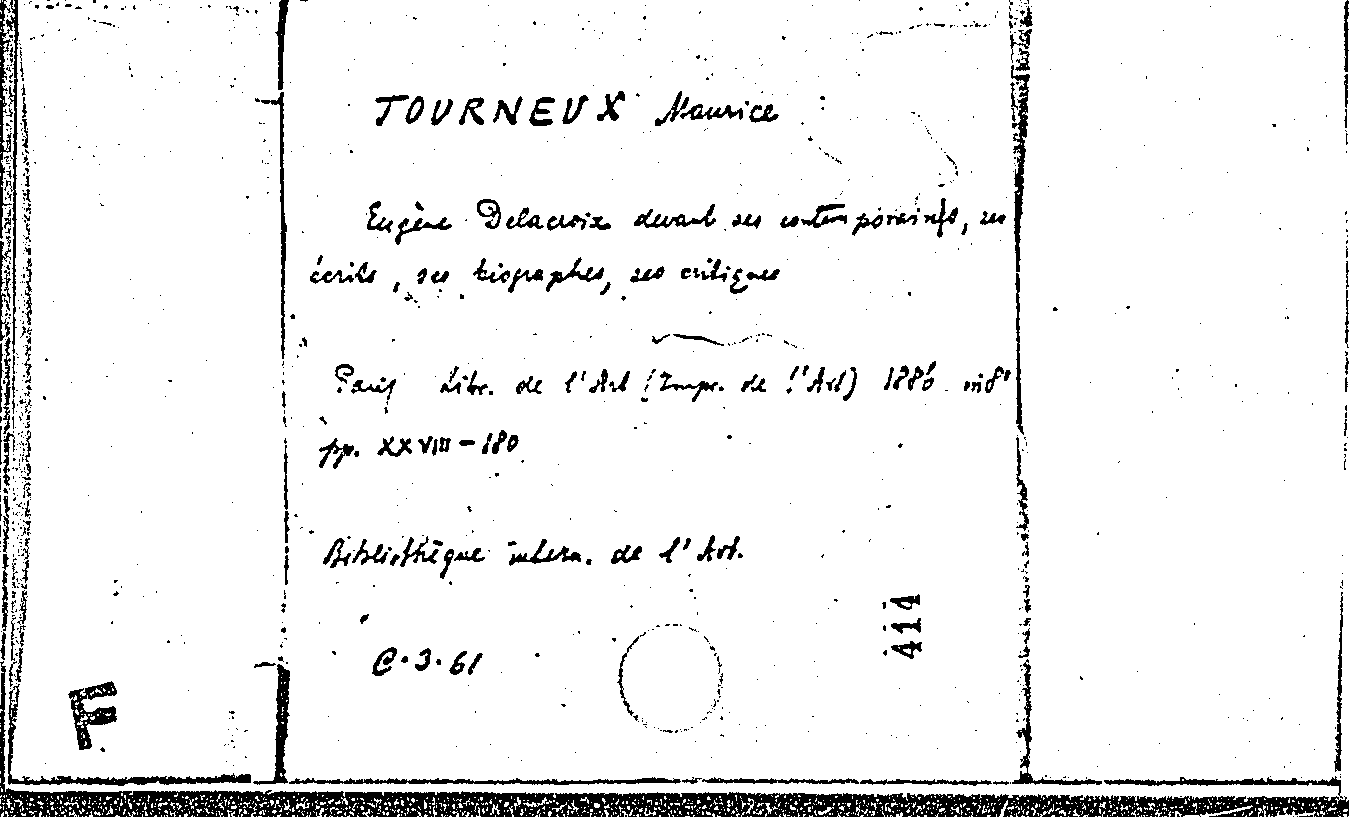 TOURNEUX Maurice
Eugène Delacroix devant ses contemporains, ses
écrits, ses biographes, ses critiques
Paris Libr. de l'Art (Impr. de l'Art) 1886 in 8°
pp. XXVIII - 180
Bibliothèque intern. de l'Art.
414
C.3.61
F